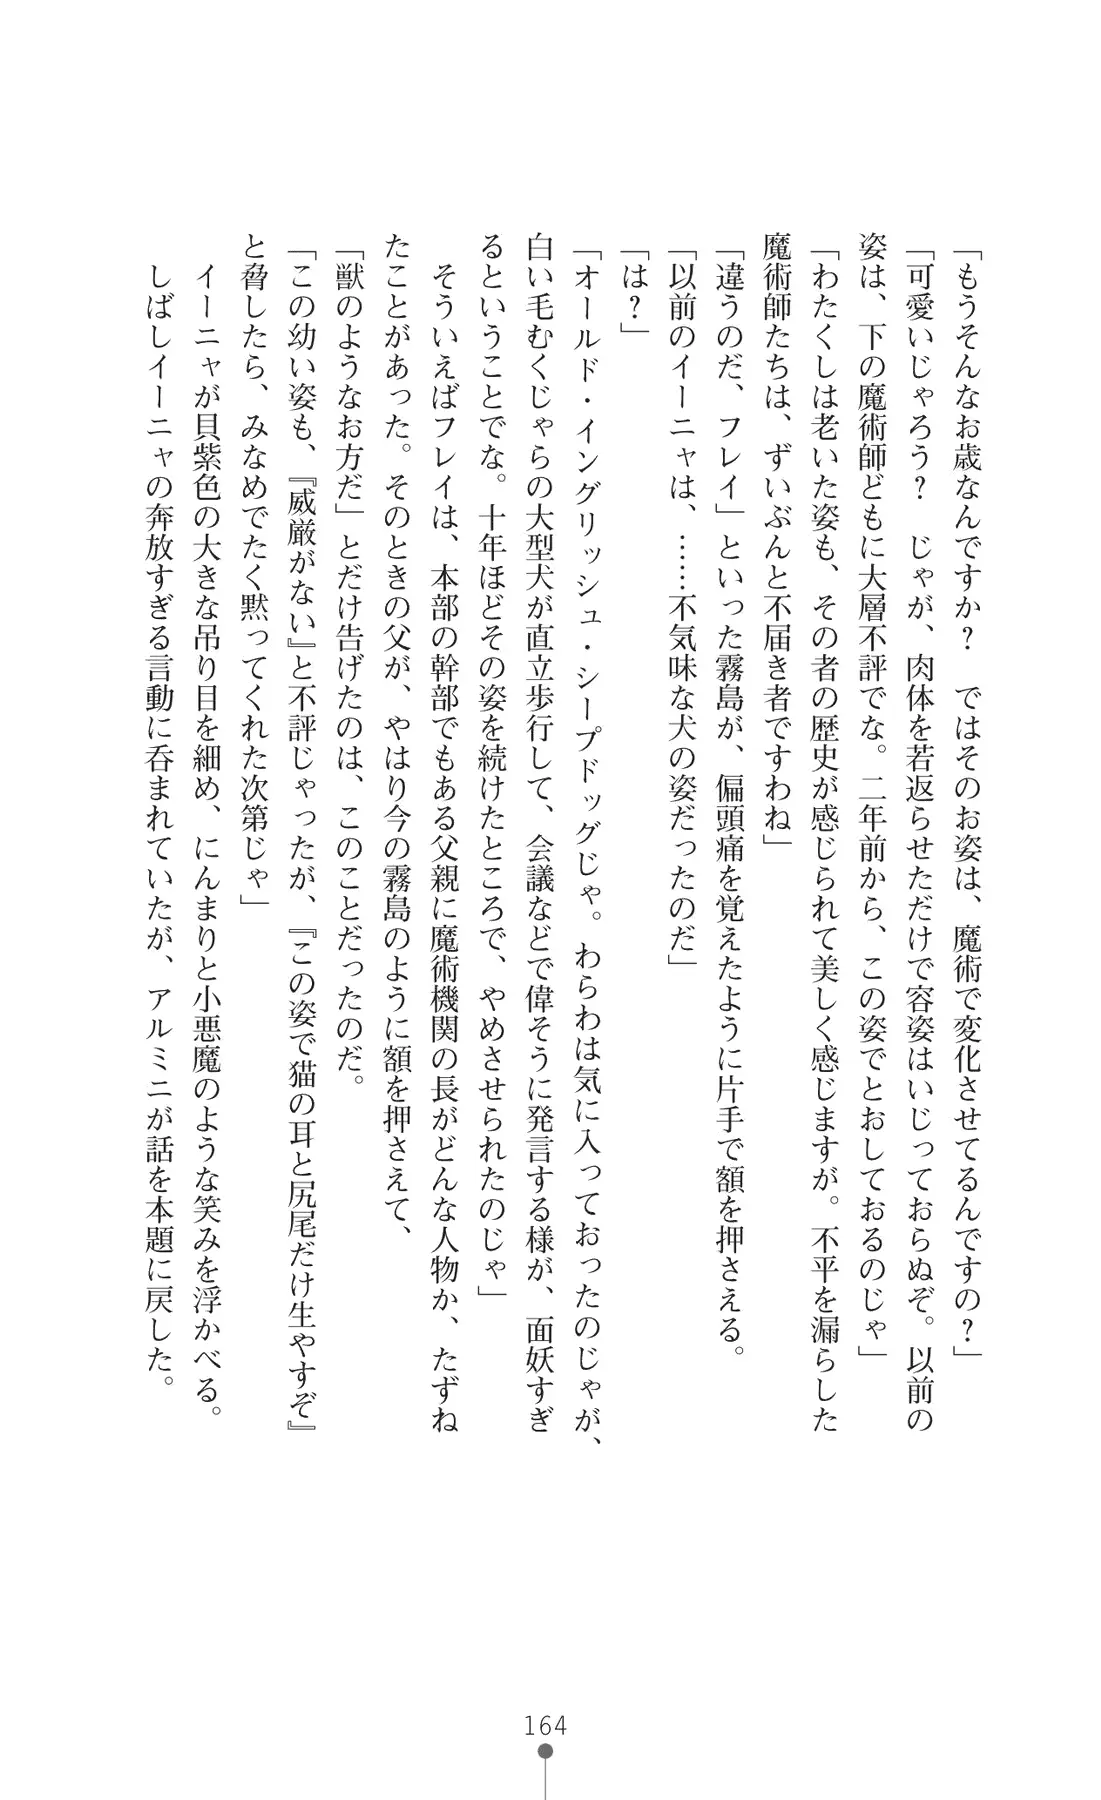 「もうそんなお歳なんですか？　ではそのお姿は、魔術で変化させてるんですの？」
「可愛いじゃろう？　じゃが、肉体を若返らせただけで容姿はいじっておらぬぞ。以前の
姿は、下の魔術師どもに大層不評でな。二年前から、この姿でとおしておるのじゃ」
「わたくしは老いた姿も、その者の歴史が感じられて美しく感じますが。不平を漏らした
魔術師たちは、ずいぶんと不届き者ですわね」
「違うのだ、フレイ」といった霧島が、偏頭痛を覚えたように片手で額を押さえる。
「以前のイーニャは、……不気味な犬の姿だったのだ」
「は？」
「オールド・イングリッシュ・シープドッグじゃ。わらわは気に入っておったのじゃが、
白い毛むくじゃらの大型犬が直立歩行して、会議などで偉そうに発言する様が、面妖すぎ
るということでな。十年ほどその姿を続けたところで、やめさせられたのじゃ」
　そういえばフレイは、本部の幹部でもある父親に魔術機関の長がどんな人物か、たずね
たことがあった。そのときの父が、やはり今の霧島のように額を押さえて、
「獣のようなお方だ」とだけ告げたのは、このことだったのだ。
「この幼い姿も、『威厳がない』と不評じゃったが、『この姿で猫の耳と尻尾だけ生やすぞ』
と脅したら、みなめでたく黙ってくれた次第じゃ」
　イーニャが貝紫色の大きな吊り目を細め、にんまりと小悪魔のような笑みを浮かべる。
　しばしイーニャの奔放すぎる言動に呑まれていたが、アルミニが話を本題に戻した。
164